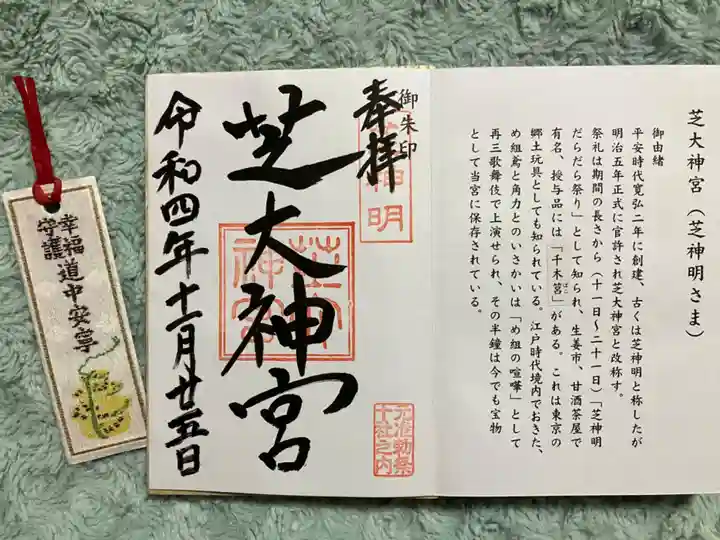 芝大神宮(芝神明さま)
御由緒
平安時代寛弘二年に創建、古くは芝神明と称したが
明治五年正式に官許され芝大神宮と改称す。
祭礼は期間の長さから(十一日~二十一日)「芝神明
だらだら祭り」として知られ、生姜市、甘酒茶屋で
有名、授与品には「千木筥」がある。これは東京の
ばこ
郷土玩具としても知られている。江戸時代境内でおきた、
め組鳶と角力とのいさかいは「め組の喧嘩」として
再三歌舞伎で上演せられ、その半鐘は今でも宝物
として当宮に保存されている。
御朱印
奉拝
芝神明
芝大神宮
芝大神宮
元准勅祭
十社之内
令和四年十一月廿五日
幸福
守護
道中安寧